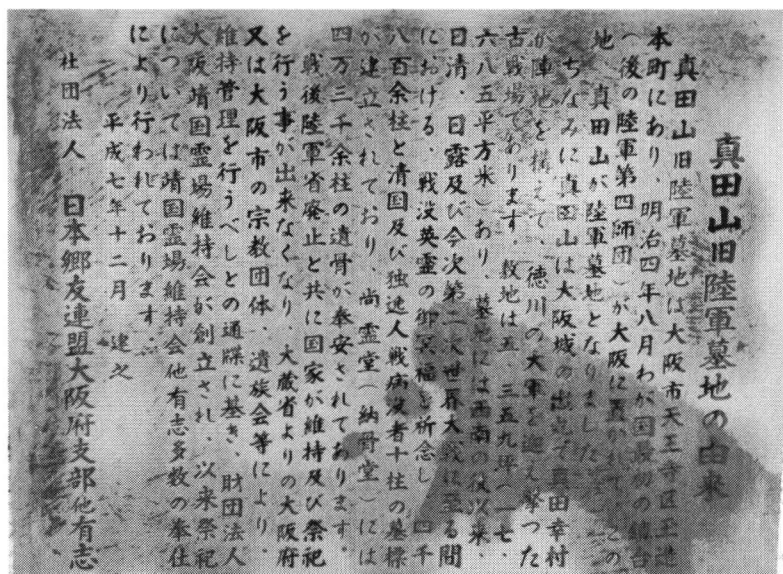 真田山旧陸軍墓地の由来
真田山旧陸軍墓地は大阪市天王寺区玉造
本町にあり、明治四年八月わが国最初の鎮台
(後の陸軍第四師団)が大阪に置かれて、この
地、真田山が陸軍墓地となりました。
ちなみに真田山は大阪城の出丸で真田幸村
が陣地を構えて、徳川の大軍を迎え撃った
古戦場であります。敷地は五、三五九坪(一七、
六八五平方米)あり、墓地には西南の役以来、
日清、日露及び今次第二次世界大戦に至る間
における、戦没英霊の御冥福を祈念し、四千
八百余柱と清国及び独逸人戦病没者十柱の墓標
が建立されており、尚霊堂(納骨堂)には
四万三千余柱の遺骨が奉安されてあります。
戦後陸軍省廃止と共に国家が維持及び祭祀
を行う事が出来なくなり、大蔵省よりの大阪府
又は大阪市の宗教団体、遺族会等により、
維持管理を行うべしとの通牒に基き、財団法人
大阪靖国霊場維持会が創立され、以来祭祀
については靖国霊場維持会他有志多数の奉仕
により行われております。
平成七年十二月 建之
社団法人 日本郷友連盟大阪府支部他有志